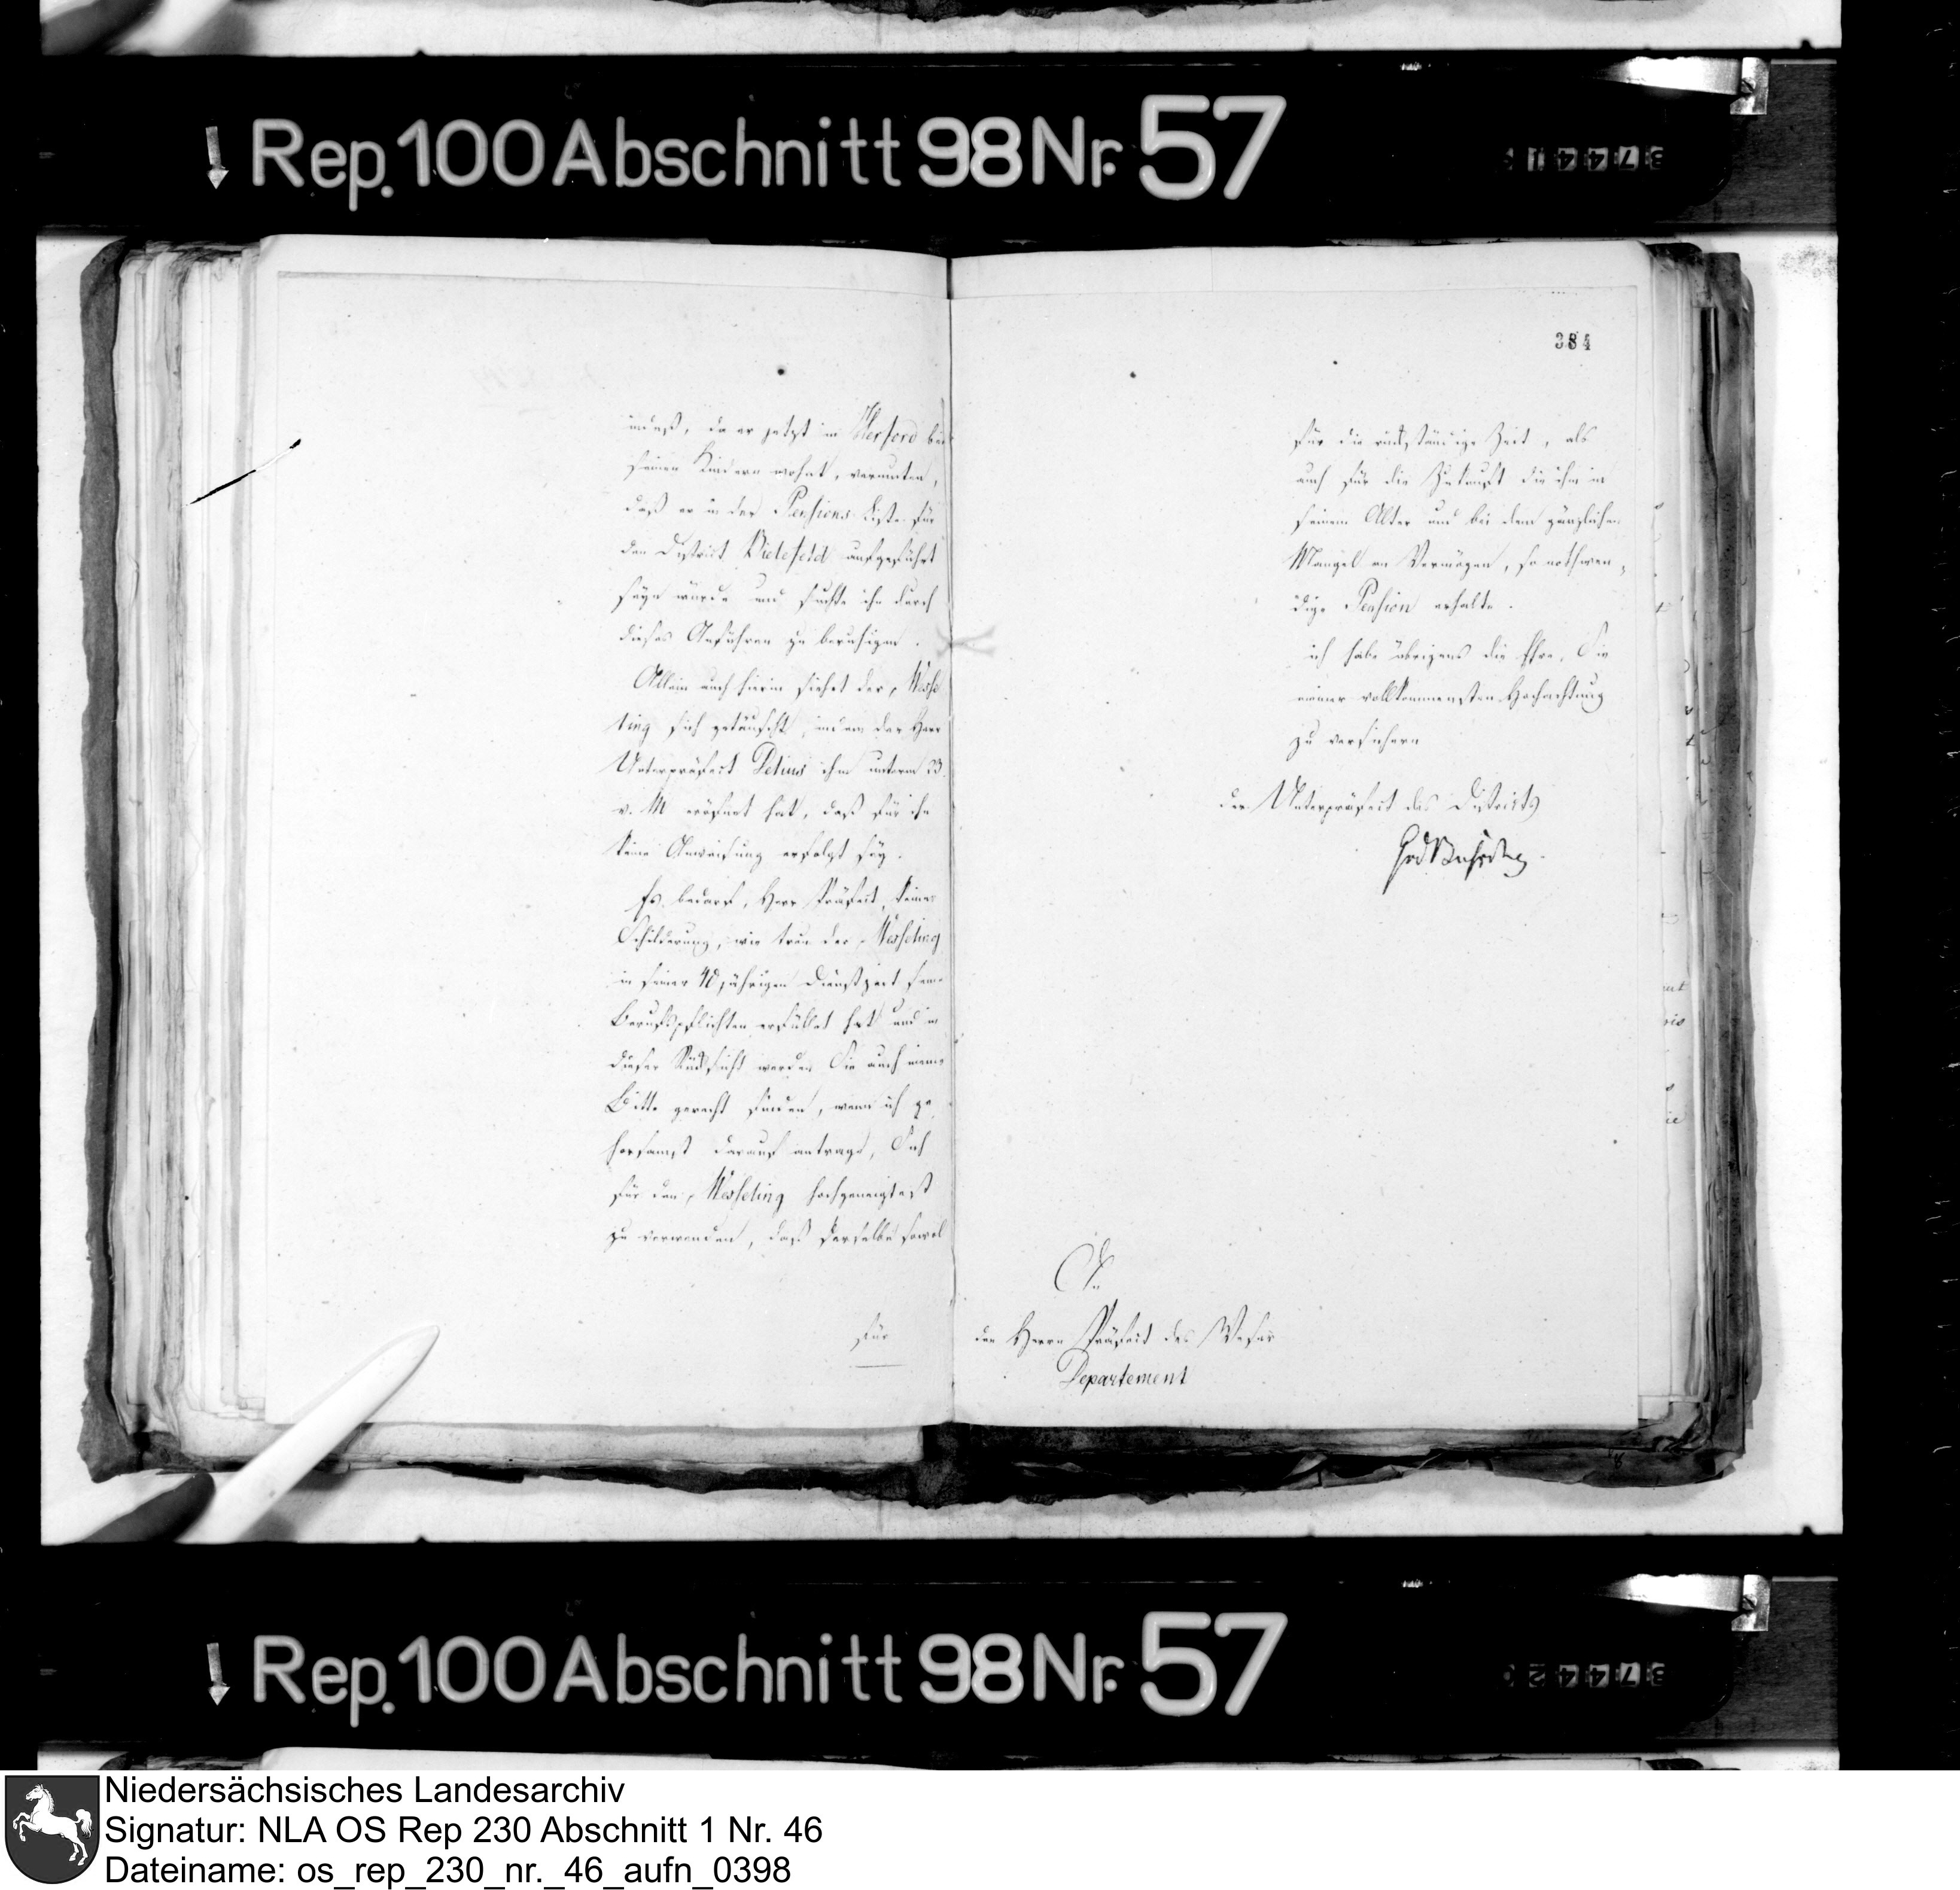 Rep. 100 Abschnitt 98 Nr. 57
37441
384
muß, da er jetzt in Herford bei
seinen Kindern wohnt, vermuten,
daß er in der Pensions Liste für
den District Bielefeld aufgeführt
seyn würde und suchte ihn durch
dieses Anführen zu beruhigen.
Allein auch hierin siehet der Wesse
ling sich getäuscht, indem der Herr
Unterpräfect Delius ihm unterm 23.
v. M eröfnet hat, daß für ihn
keine Anweisung erfolgt sey.
Es bedarf, Herr Präfect, keiner
Schilderung, wie treu der Wesseling
in seiner 40 jährigen Dienstzeit seine
Berufspflichten erfüllet hat und in
dieser Rücksicht werden Sie auch meine
Bitte gerecht finden, wenn ich ge
horsamst darauf antrage, Sich
für den Wesseling hochgeneigtest
zu verwenden, daß derselbe sowol
für
für die rückständige Zeit, als
auch für die Zukunft die ihm in
seinem Alter und bei dem gänzlichen
Mangel an Vermögen, so nothwen
dige Pension erhalte.
ich habe übrigens die Ehre, Sie
meiner vollkommensten Hochachtung
zu versichern
der Unterpräfect des Districts
An
den Herrn Präfect des Weser
Departement
Rep. 100 Abschnitt 98 Nr. 57
37442
Niedersächsisches Landesarchiv
Signatur: NLA OS Rep 230 Abschnitt 1 Nr. 46
Dateiname: os_rep_230_nr._46_aufn_0398